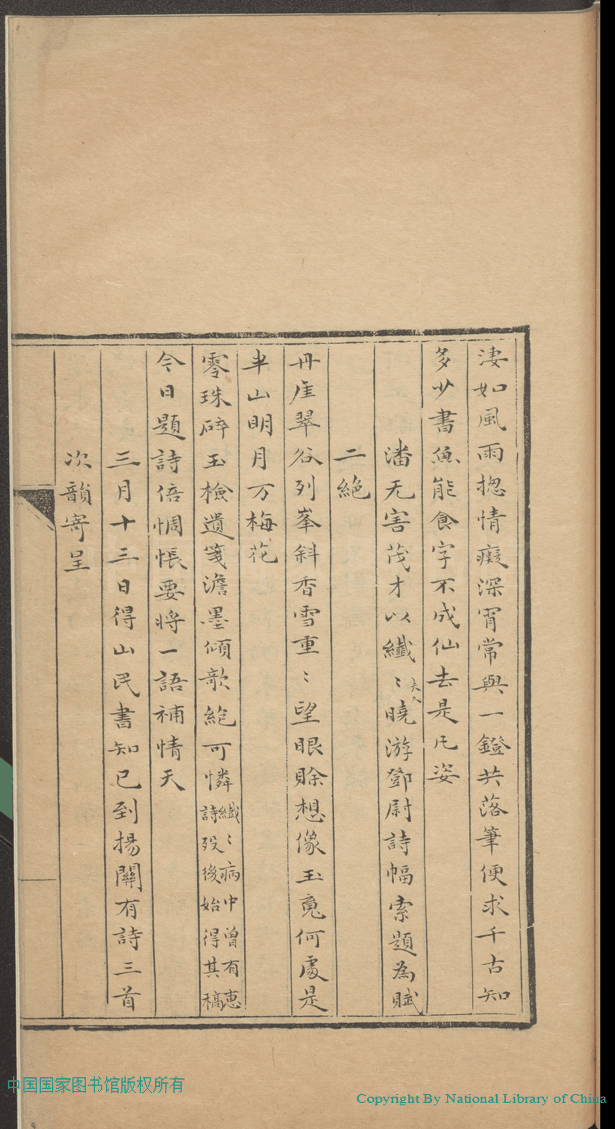 淒如風雨揔情癡深宵常與一鐙共落筆便求千古知
多少書魚能食字不成仙去是凡姿
潘无害茂才以纖〻夫人曉游鄧尉詩幅索題為賦
二絶
丹厓翠谷列峯斜香雪重〻望眼賒想像玉䰟何處是
半山明月万梅花
零珠碎玉檢遺箋澹墨傾欹絶可憐纖〻病中曾有惠
詩歿後始得其稿
今日題詩倍惆悵要將一語補情天
三月十三日得山民書知已到揚關有詩三首
次韻寄呈
中国国家图书馆版权所有
Copyright By National Library of China